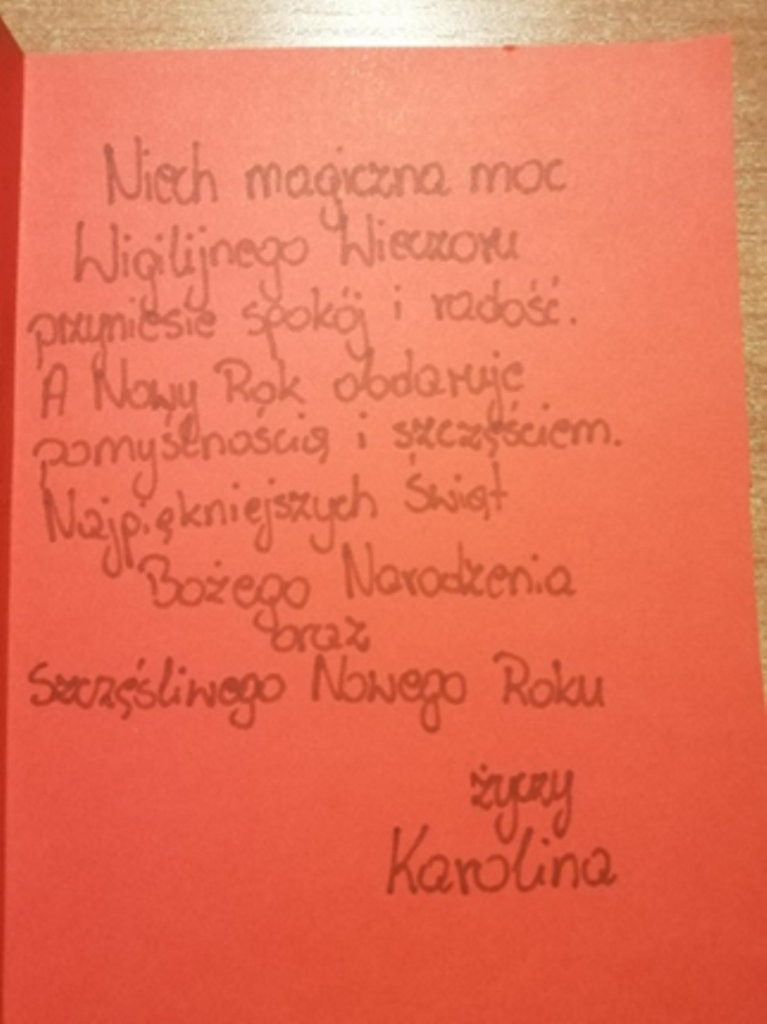 Niech magiczna moc
Wigilijnego Wieczoru
przyniesie spokój i radość.
A Nowy Rok obdaruje
pomyślnością i szczęściem.
Najpiękniejszych Świąt
Bożego Narodzenia
oraz
Szczęśliwego Nowego Roku
życzy
Karolina